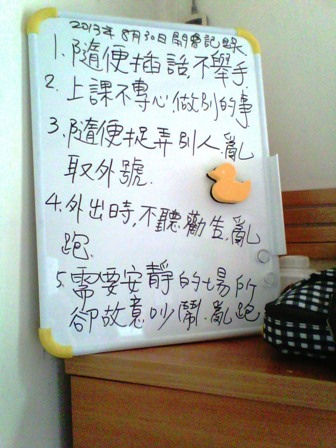 2013年8月30日開會記錄
1.隨便插話,不舉手
2.上課不專心,做別的事
3.隨便捉弄別人,亂
取外號.
4.外出時,不聽勸告,亂
跑.
5.需要安靜的場所
卻故意吵鬧.亂跑